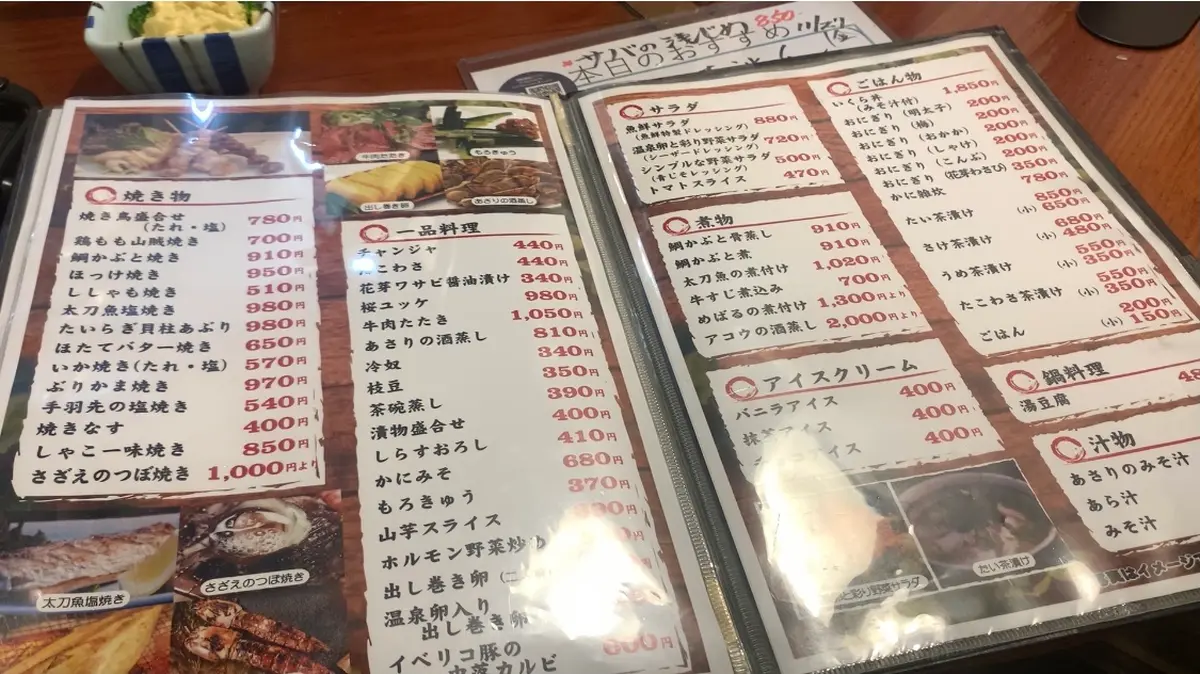 本日のおすすめ
サバの
850
焼き物
焼き鳥盛合せ 780円
(たれ・塩)
鶏もも山賊焼き 700円
鯛かぶと焼き 910円
ほっけ焼き 950円
ししゃも焼き 510円
太刀魚塩焼き 980円
たいらぎ貝柱あぶり 980円
ほたてバター焼き 650円
いか焼き(たれ・塩) 570円
ぶりかま焼き 970円
手羽先の塩焼き 540円
焼きなす 400円
しゃこ一味焼き 850円
さざえのつぼ焼き 1,000円より
太刀魚塩焼き
さざえのつぼ焼き
牛肉たたき
もろきゅう
出し巻き卵
あさりの酒蒸し
一品料理
チャンジャ 440円
たこわさ 440円
花芽ワサビ醤油漬け 340円
桜ユッケ 980円
牛肉たたき 1,050円
あさりの酒蒸し 810円
冷奴 340円
枝豆 350円
茶碗蒸し 390円
漬物盛合せ 400円
しらすおろし 410円
かにみそ 680円
もろきゅう 370円
山芋スライス
ホルモン野菜炒め
出し巻き卵
温泉卵入り
出し巻き卵
イベリコ豚の
中落カルビ
サラダ
魚鮮サラダ 880円
(魚鮮特製ドレッシング)
温泉卵と彩り野菜サラダ 720円
(シーザードレッシング)
シンプルな野菜サラダ 500円
(青じそドレッシング)
トマトスライス 470円
煮物
鯛かぶと骨蒸し 910円
鯛かぶと煮 910円
太刀魚の煮付け 1,020円
牛すじ煮込み 700円
めばるの煮付け 1,300円より
アコウの酒蒸し 2,000円より
アイスクリーム
バニラアイス 400円
抹茶アイス 400円
アイス 400円
と彩り野菜サラダ
たい茶漬け
ごはん物
いくら丼 1,850円
(みそ汁付)
おにぎり(明太子) 200円
おにぎり(梅) 200円
おにぎり(おかか) 200円
おにぎり(しゃけ) 200円
おにぎり(こんぶ) 200円
おにぎり(花芽わさび) 350円
かに雑炊 780円
たい茶漬け 850円
(小) 650円
さけ茶漬け 680円
(小) 480円
うめ茶漬け 550円
(小) 350円
たこわさ茶漬け 550円
(小) 350円
ごはん 200円
(小) 150円
鍋料理
湯豆腐 48
汁物
あさりのみそ汁
あら汁
みそ汁
真はイメージ